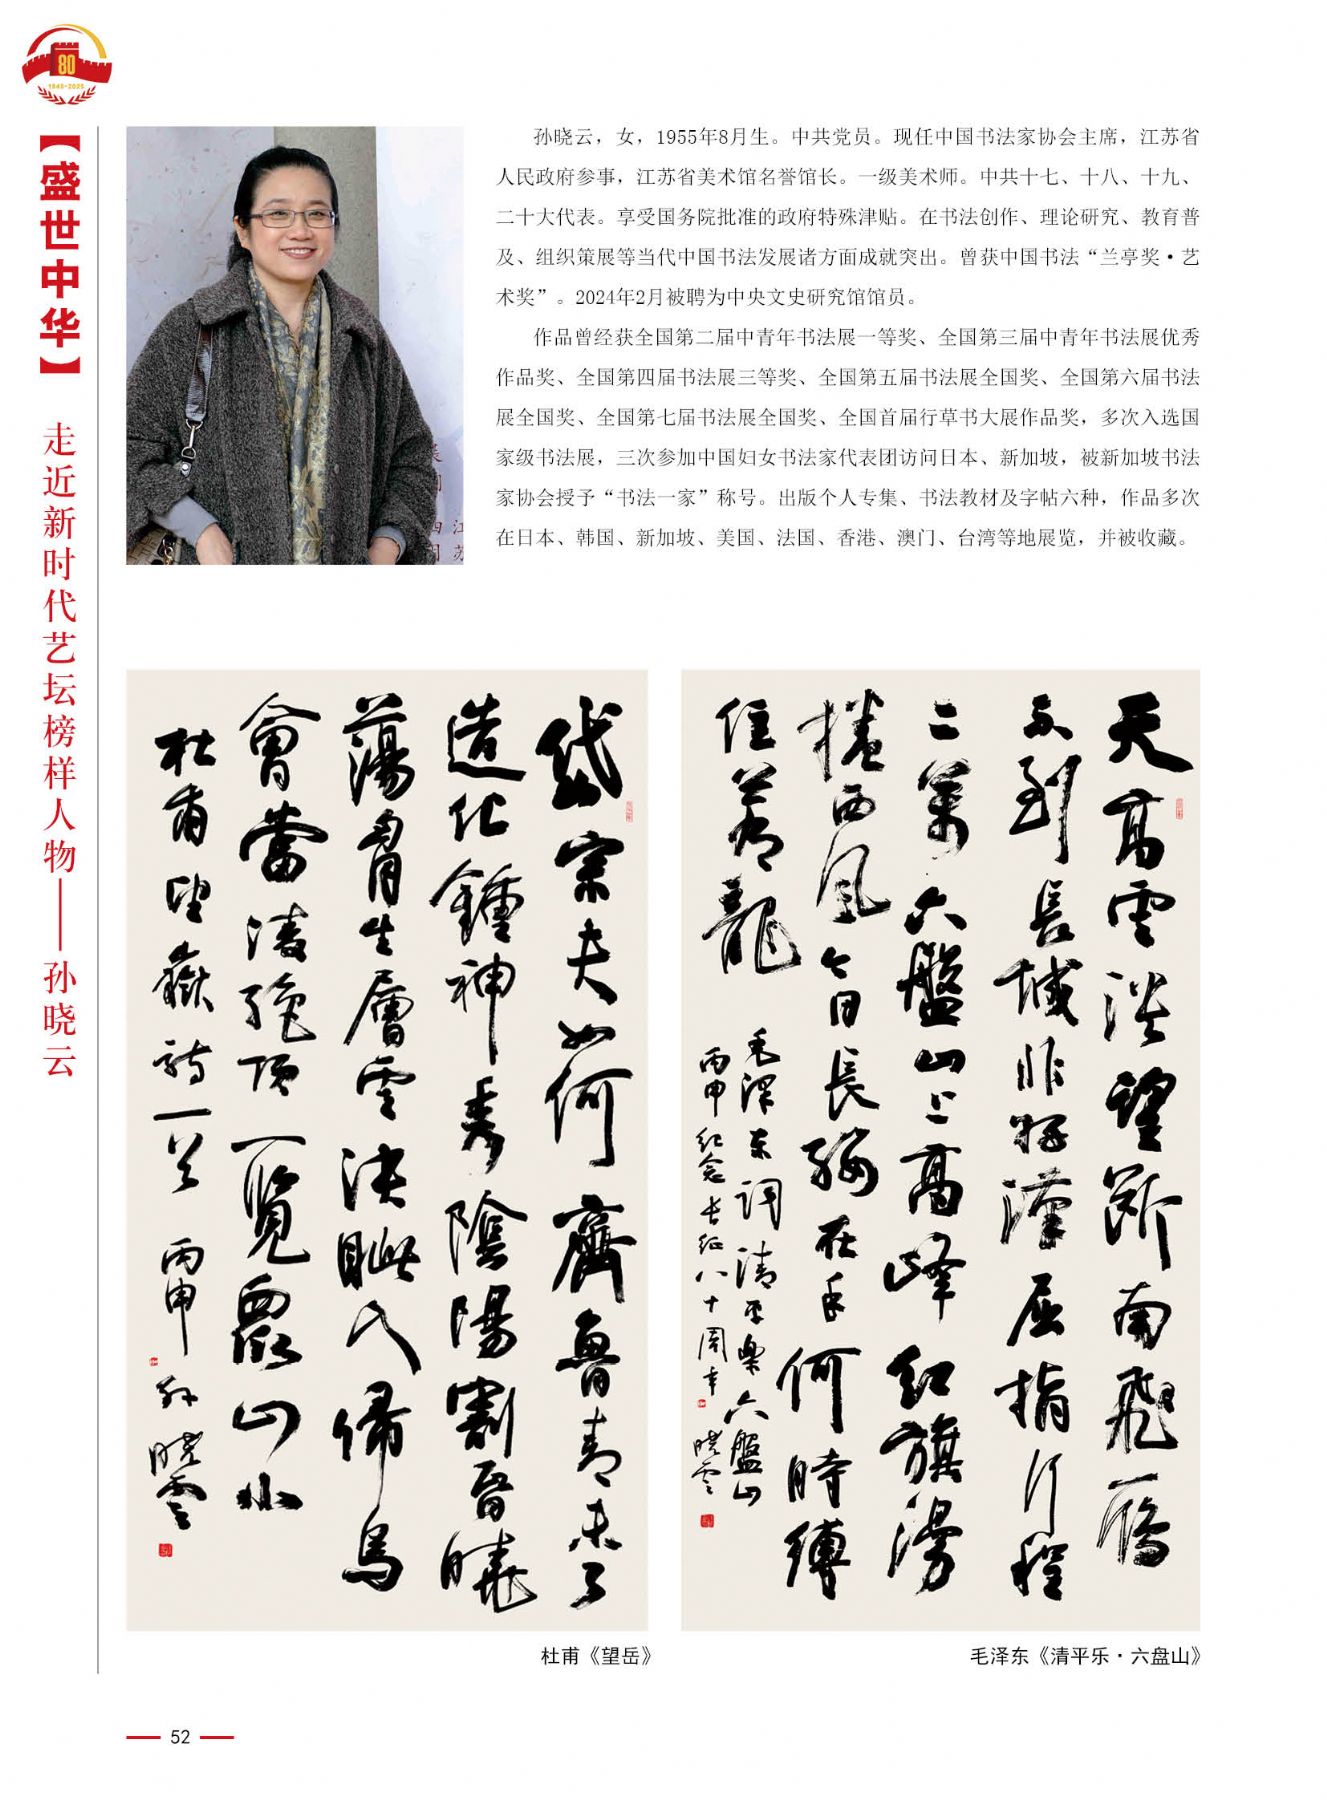 80
1945-2025
【盛世中华】
走近新时代艺坛榜样人物——孙晓云
孙晓云，女，1955年8月生。中共党员。现任中国书法家协会主席，江苏省
人民政府参事，江苏省美术馆名誉馆长。一级美术师。中共十七、十八、十九、
二十大代表。享受国务院批准的政府特殊津贴。在书法创作、理论研究、教育普
及、组织策展等当代中国书法发展诸方面成就突出。曾获中国书法“兰亭奖·艺
术奖”。2024年2月被聘为中央文史研究馆馆员。
作品曾经获全国第二届中青年书法展一等奖、全国第三届中青年书法展优秀
作品奖、全国第四届书法展三等奖、全国第五届书法展全国奖、全国第六届书法
展全国奖、全国第七届书法展全国奖、全国首届行草书大展作品奖，多次入选国
家级书法展，三次参加中国妇女书法家代表团访问日本、新加坡，被新加坡书法
家协会授予“书法一家”称号。出版个人专集、书法教材及字帖六种，作品多次
在日本、韩国、新加坡、美国、法国、香港、澳门、台湾等地展览，并被收藏。
江苏
岱宗夫如何齊魯青未了
造化鍾神秀陰陽割昏曉
蕩胷生層雲決眦入歸鳥
會當凌絕頂一覽衆山小
杜甫望嶽詩一首 丙申 孙曉雲
杜甫《望岳》
天高雲淡望斷南飛雁
不到長城非好漢屈指行程
二萬六盤山上高峰紅旗漫
捲西風今日長纓在手何時縛
住蒼龍
毛澤東詞清平樂六盤山
丙申紀念長征八十周年 曉雲
毛泽东《清平乐·六盘山》
52